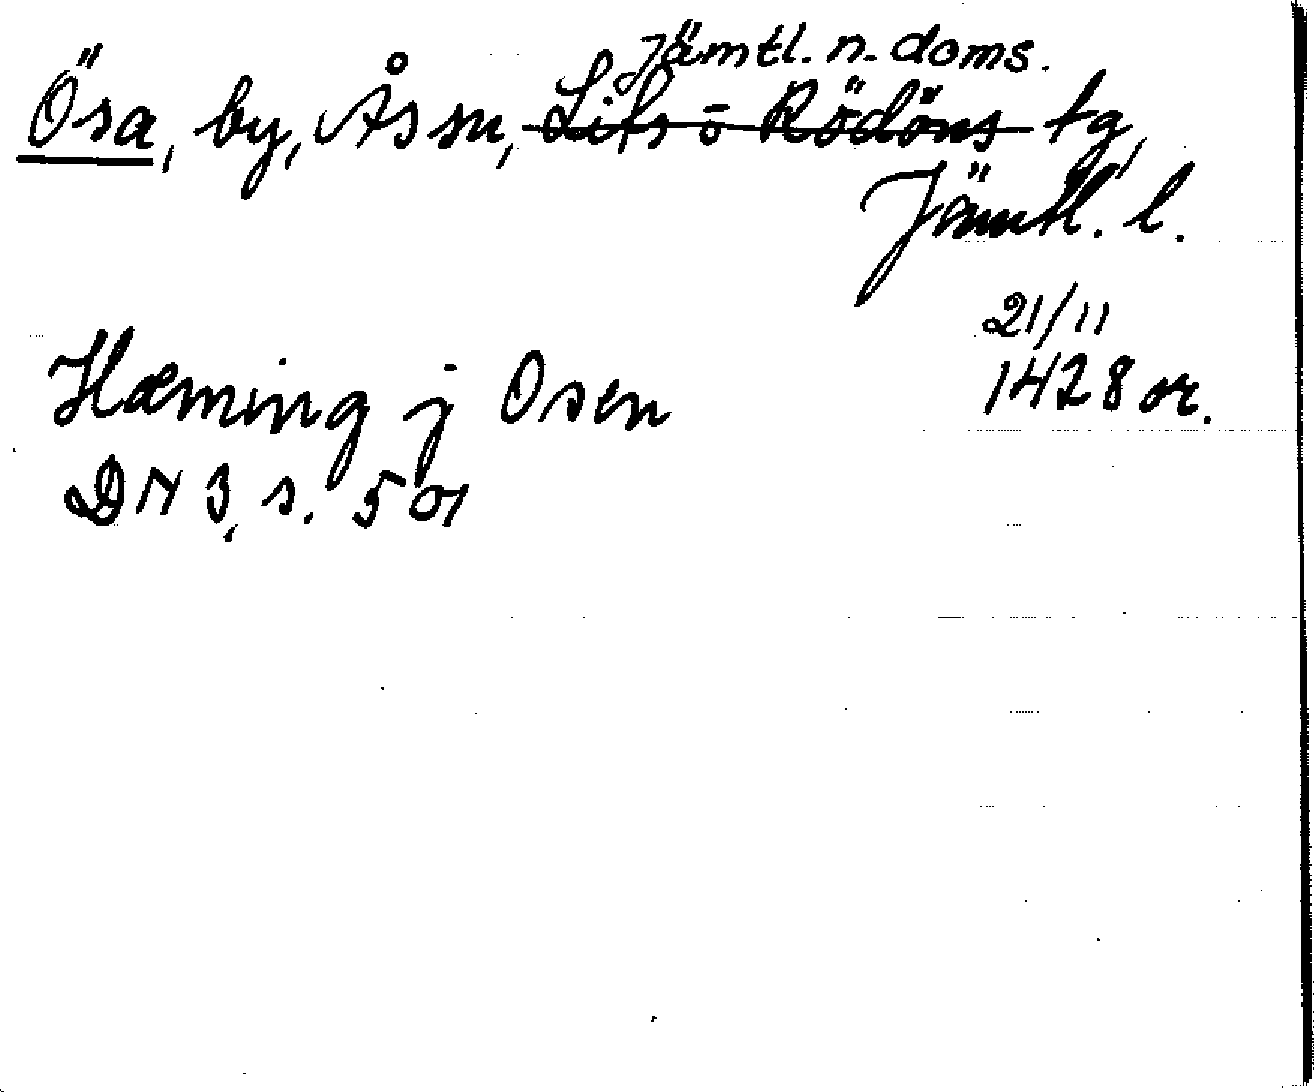 Jämtl. n. doms.
Ösa, by, Ås sn, Lits o Rödöns tg,
Jämtl. l.
21/11
Hæming j Osen 1428 or.
DN 3, s. 501